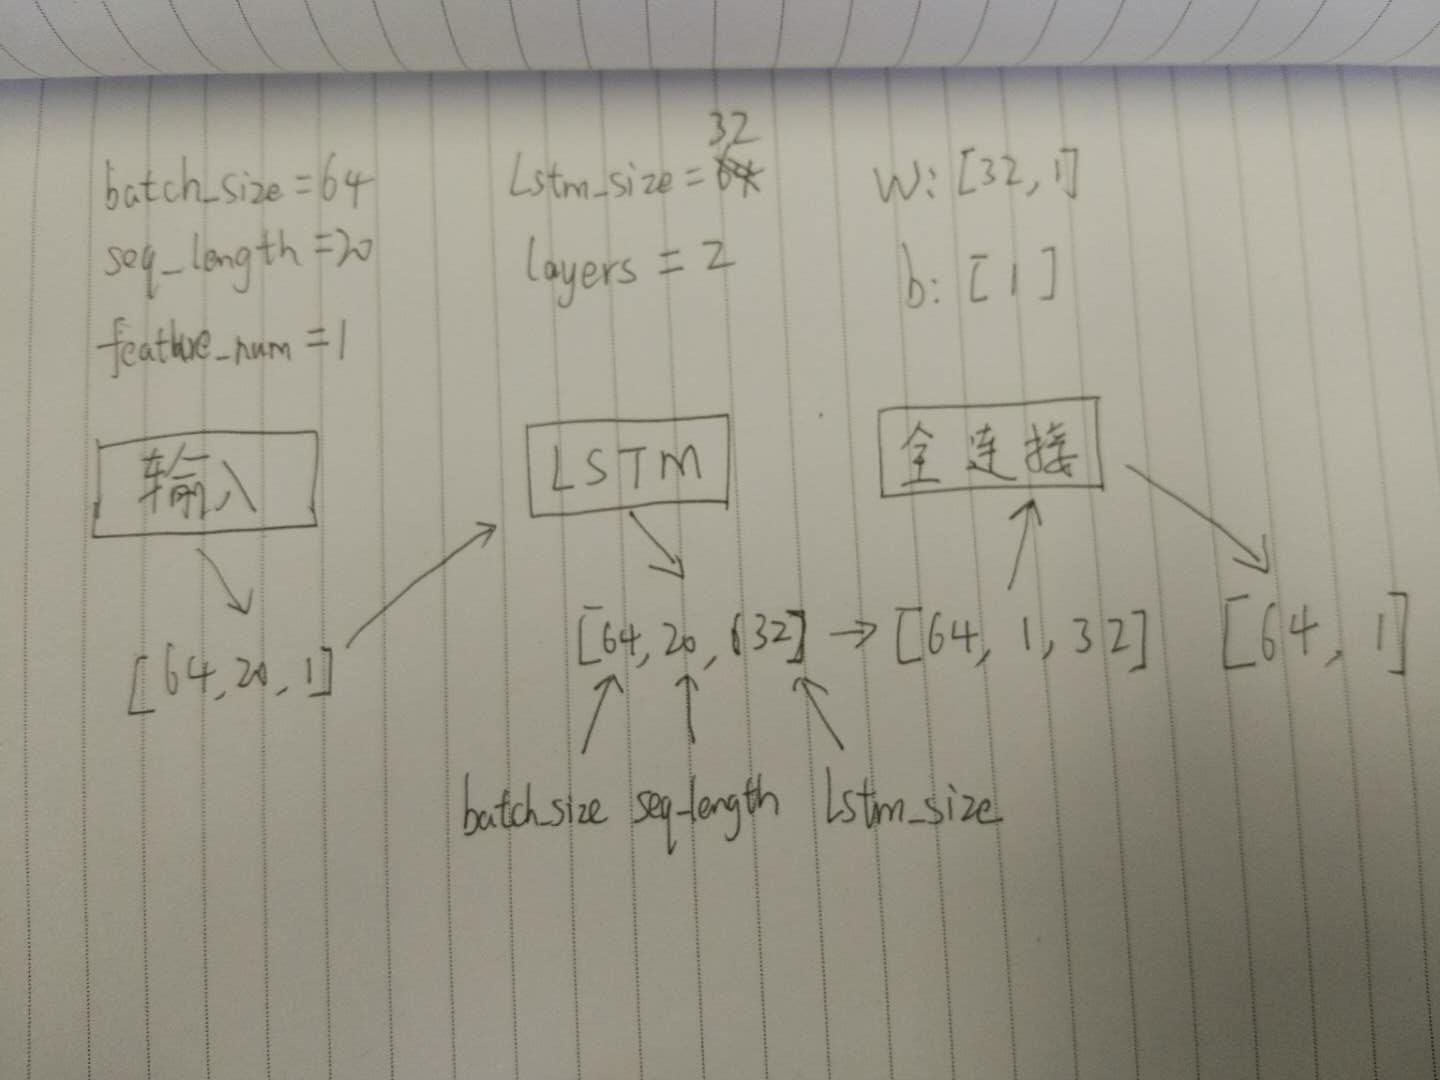 batch_size = 64
seq_length = 20
feature_num = 1
32
Lstm_size = 64
layers = 2
W: [32, 1]
b: [ 1 ]
输入
LSTM
全连接
[64, 20, 1]
[64, 20, 32] → [64, 1, 32]
[64, 1]
batch_size seq_length Lstm_size